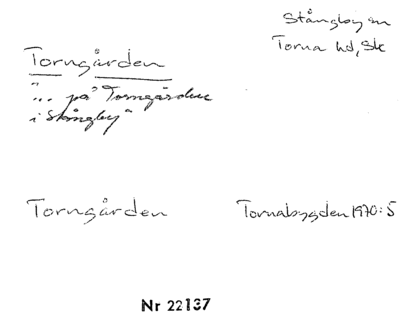 Stångby sn
Torna hd, Sk
Torngården
"... på Torngården
i Stångby"
Torngården
Tornabygden 1970:5
Nr 22137